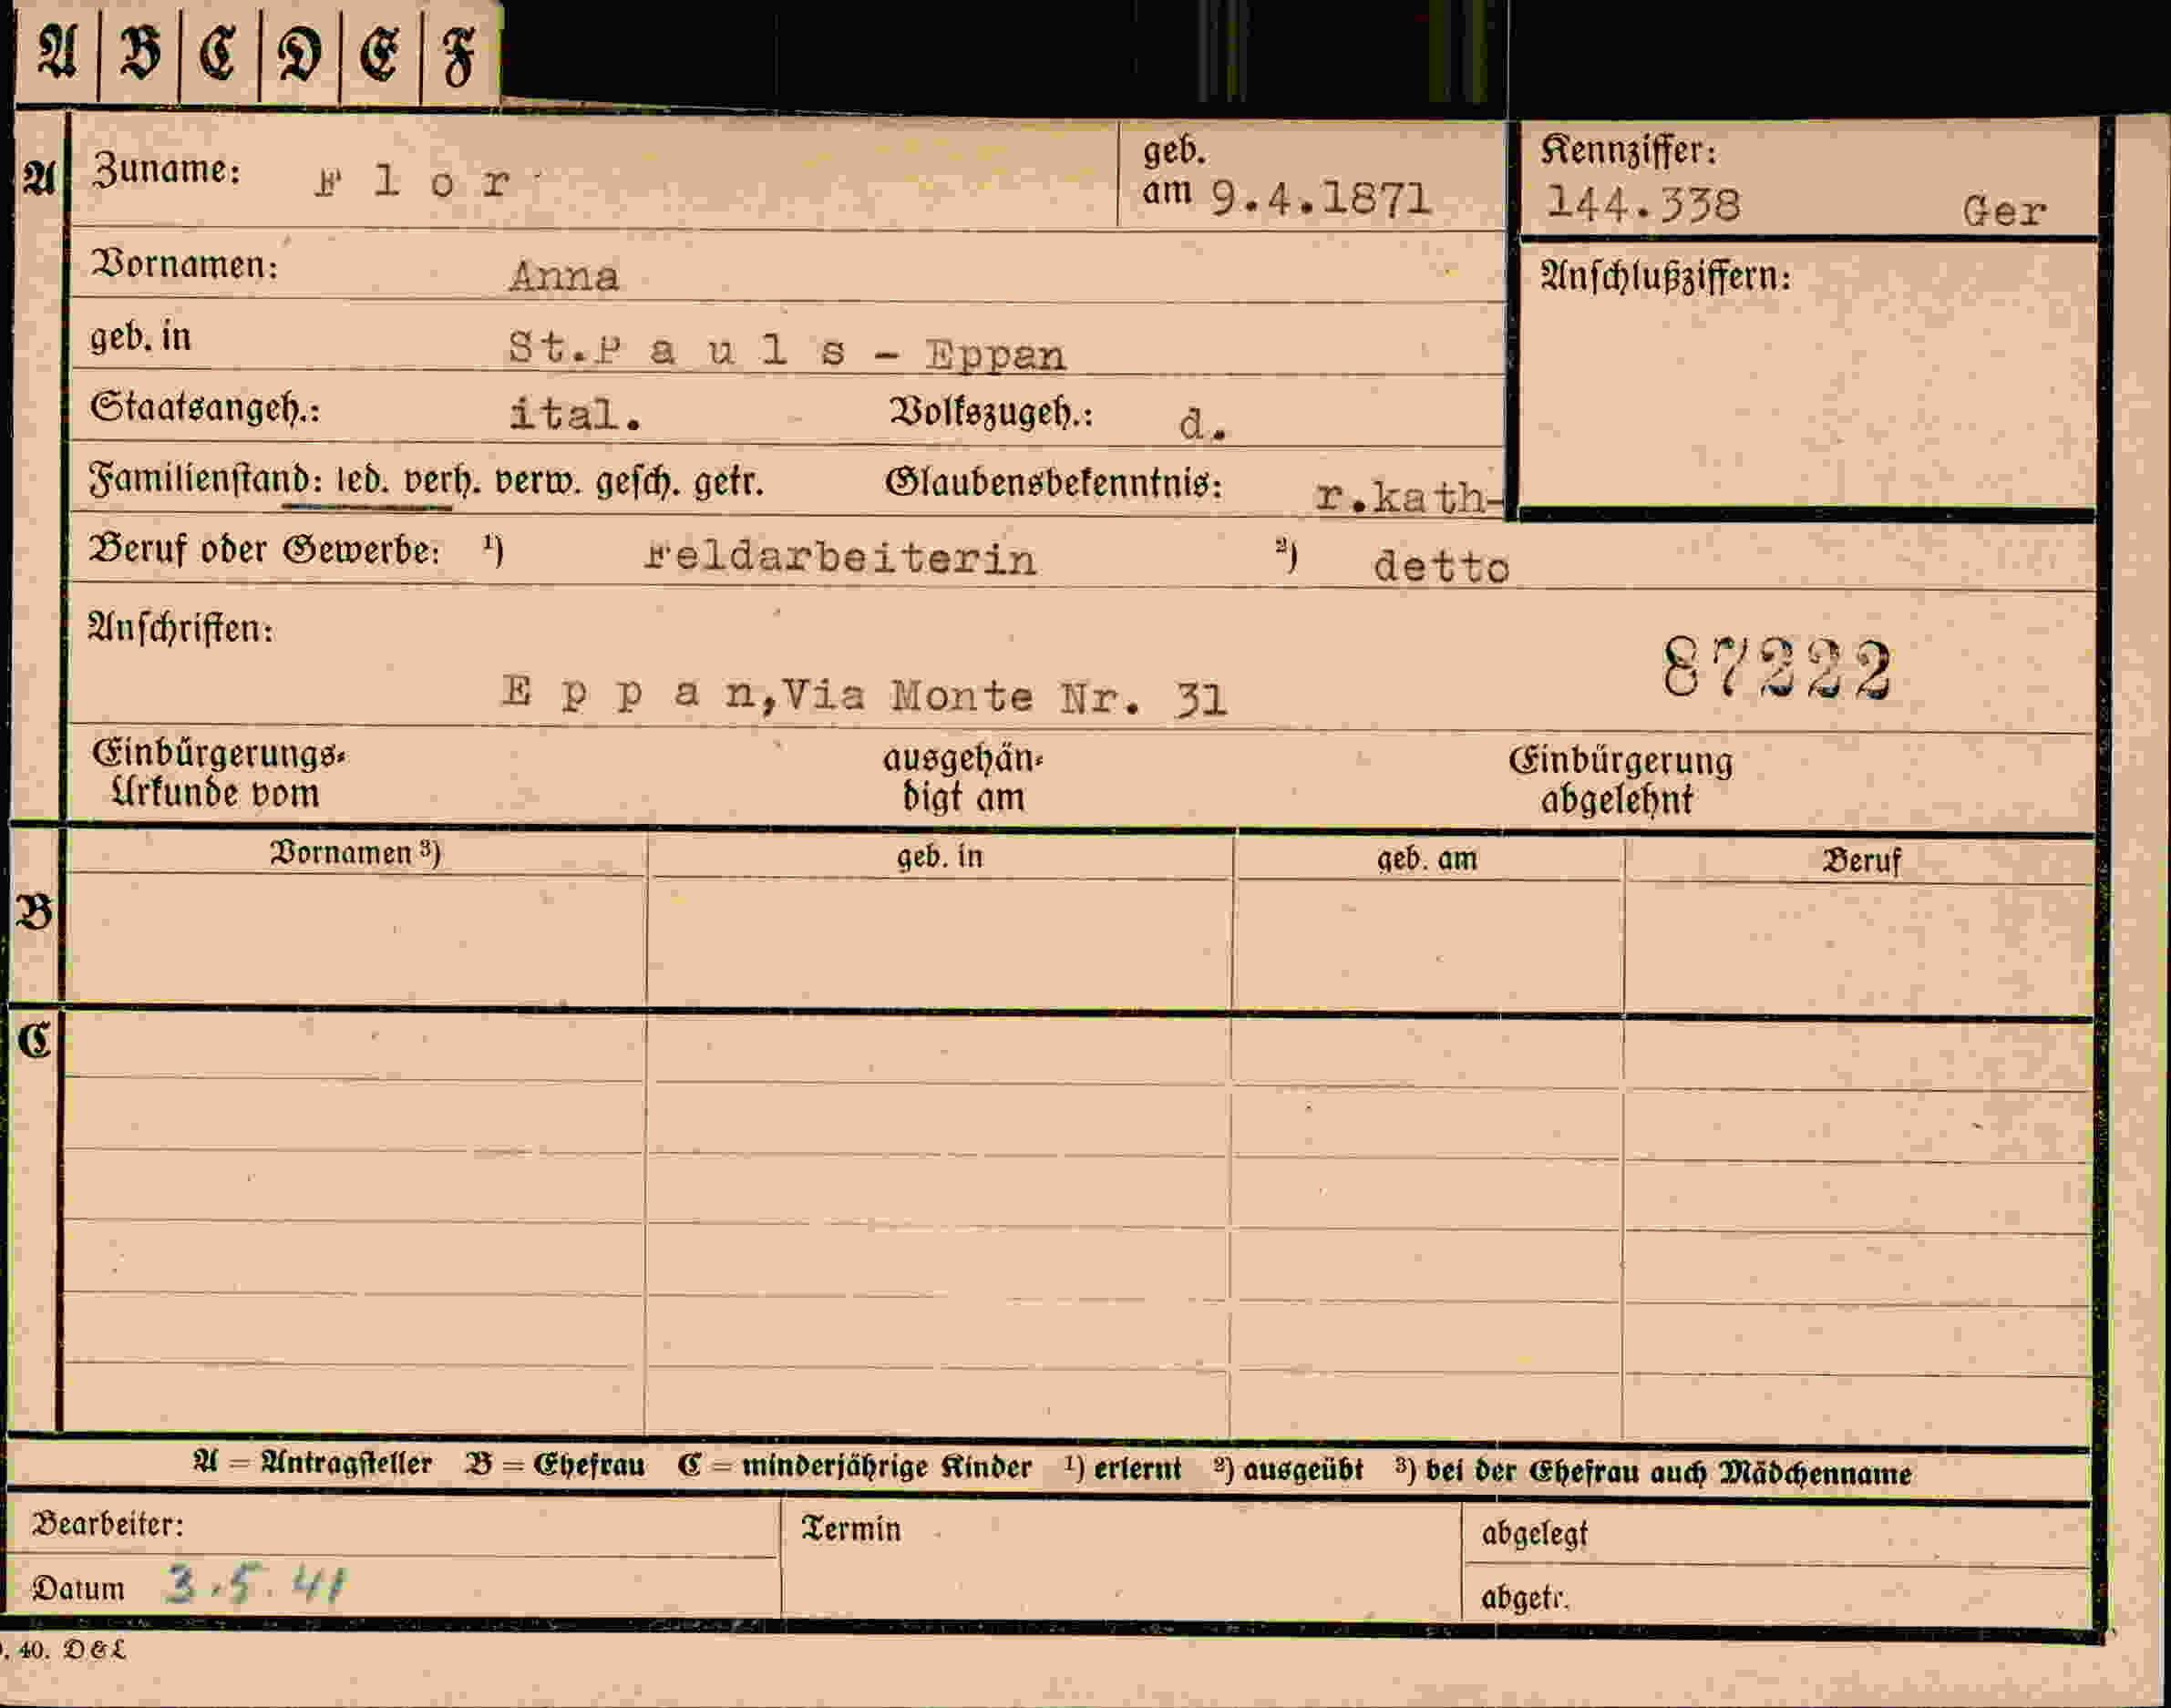 A B C D E F
A Zuname: F l o r geb. am 9.4.1871 Kennziffer: 144.338 Ger
Vornamen: Anna Anschlußziffern:
geb. in St.P a u l s - Eppan
Staatsangeh.: ital. Volkszugeh.: d.
Familienstand: led. verh. verw. gesch. getr. Glaubensbekenntnis: r.kath-
Beruf oder Gewerbe: ¹) Feldarbeiterin ²) detto
Anschriften:
87222
E p p a n,Via Monte Nr. 31
Einbürgerungs- ausgehän- Einbürgerung
Urkunde vom digt am abgelehnt
Vornamen ³) geb. in geb. am Beruf
B
C
A = Antragsteller B = Ehefrau C = minderjährige Kinder ¹) erlernt ²) ausgeübt ³) bei der Ehefrau auch Mädchenname
Bearbeiter: Termin abgelegt
Datum 3.5.41 abgetr.
. 40. D&L